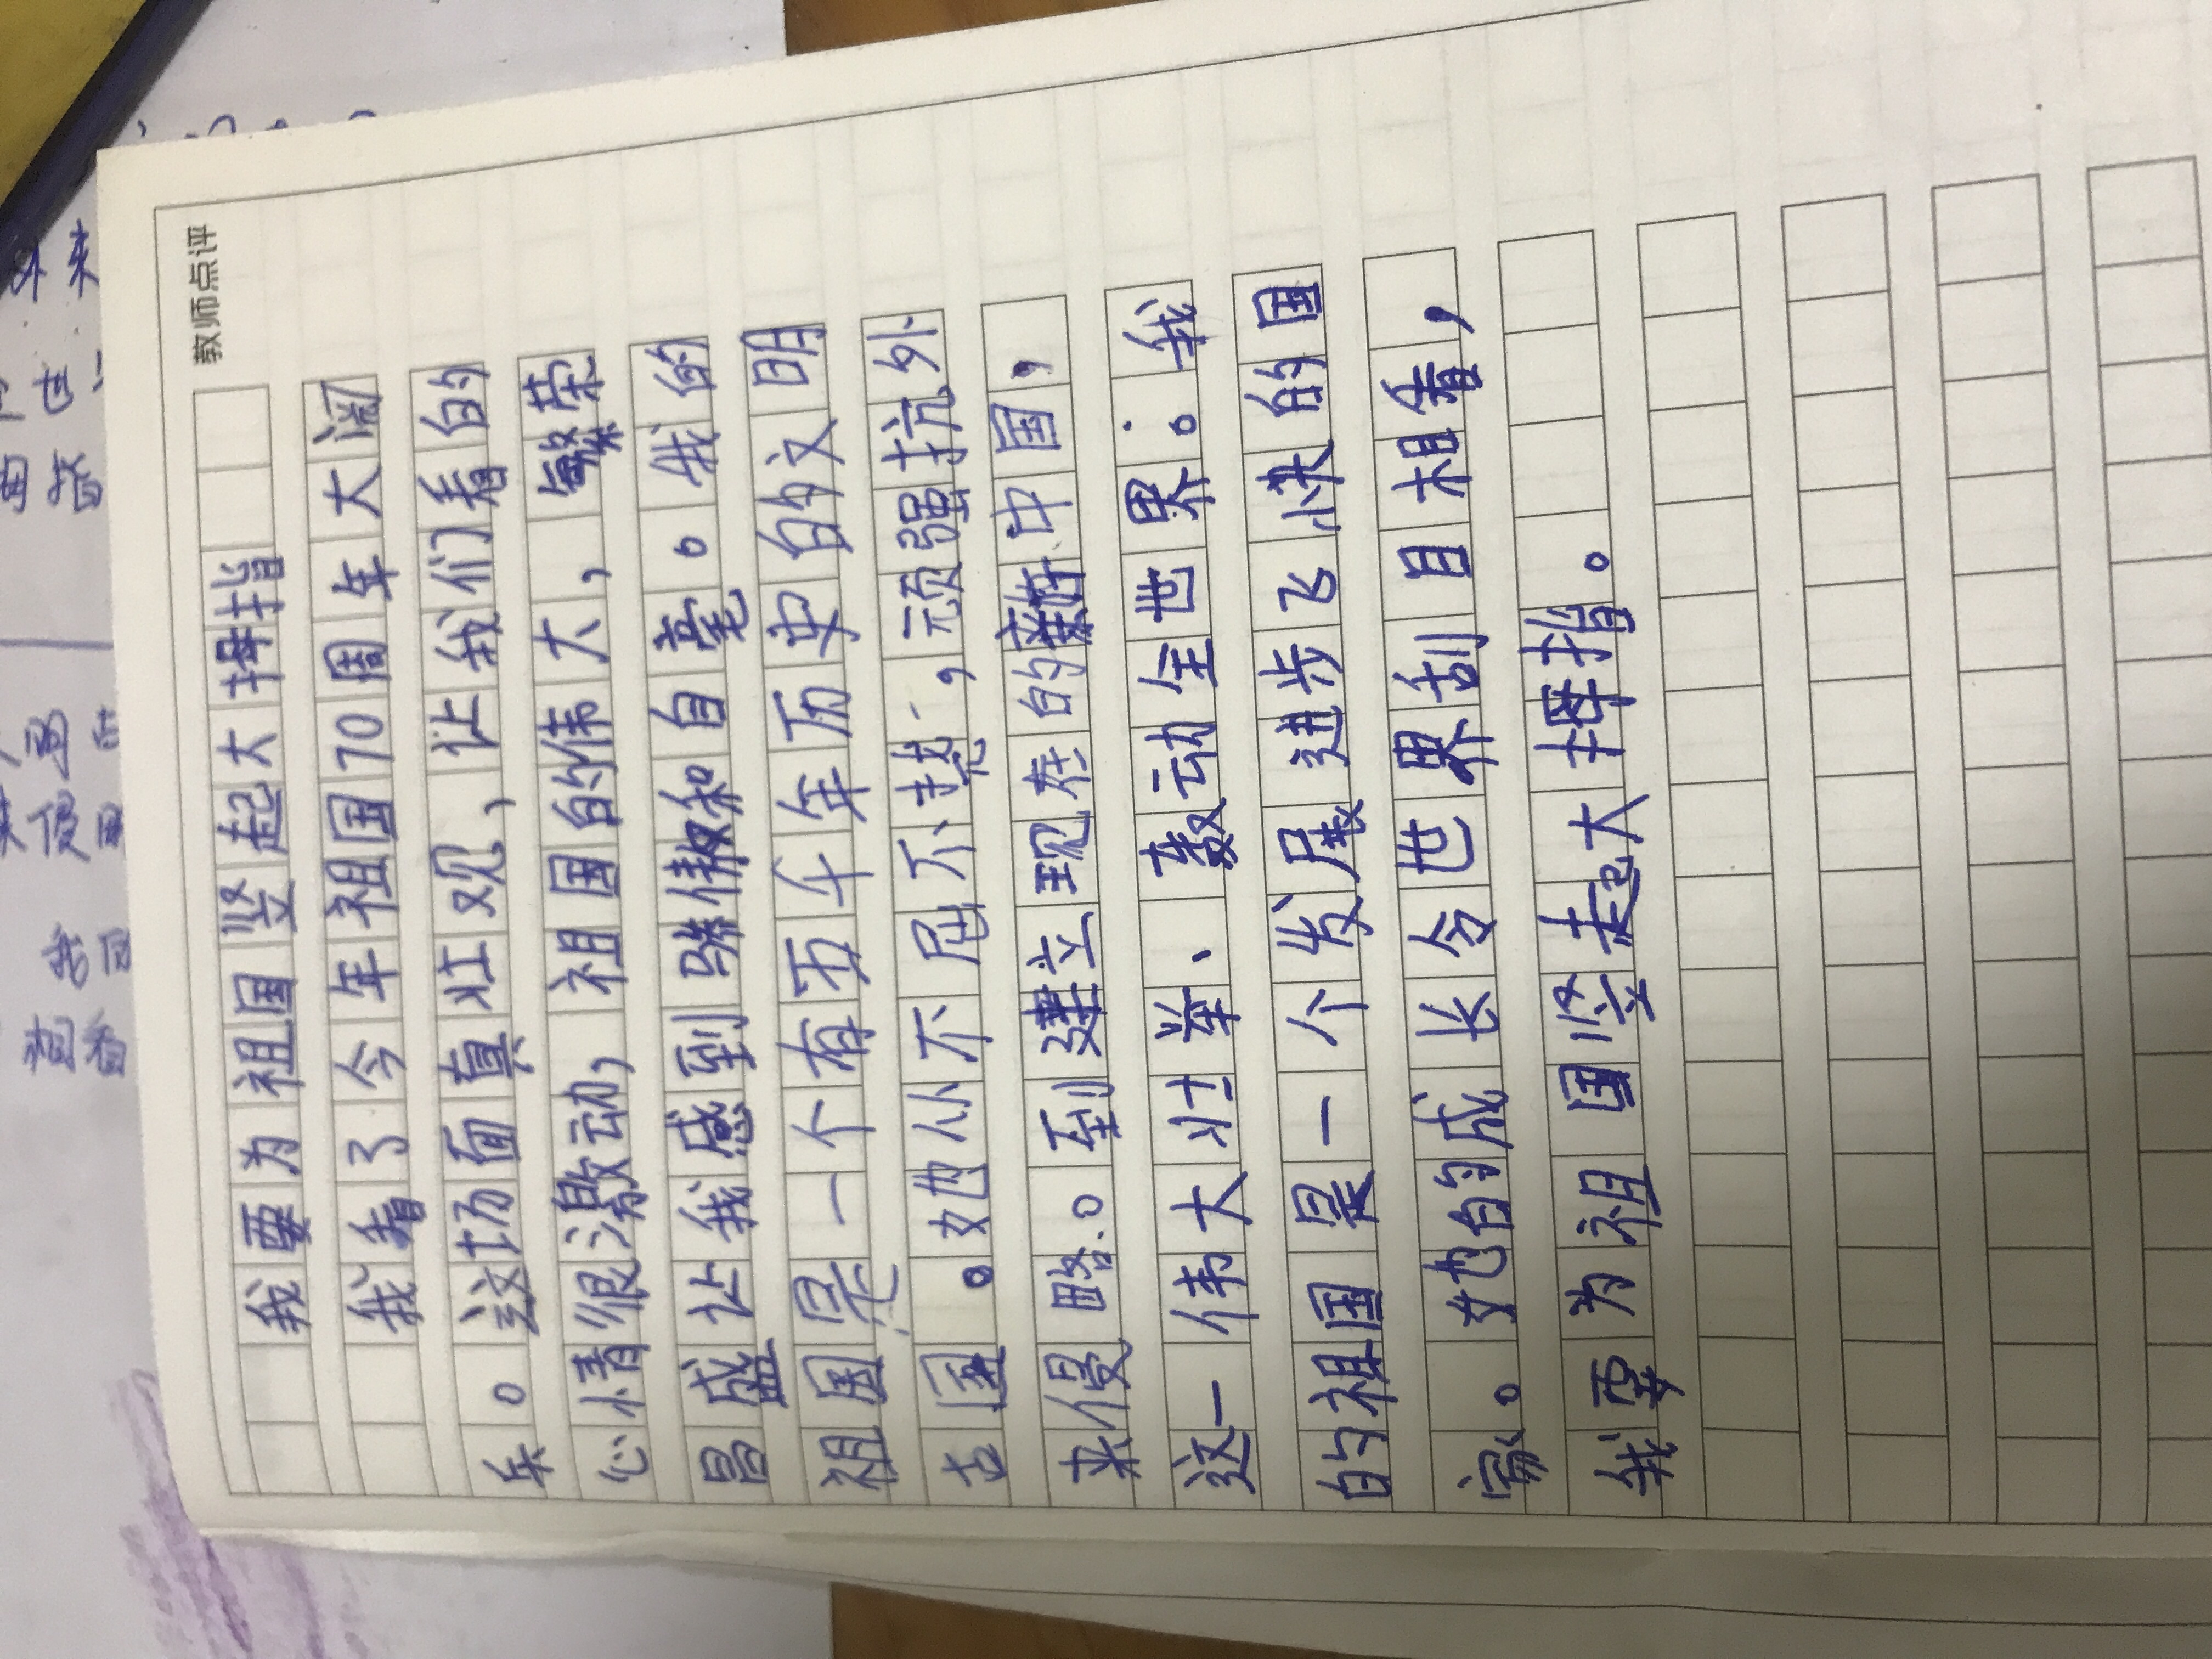 教师点评
我要为祖国竖起大拇指
我看了今年祖国70周年大阅
兵。这场面真壮观,让我们看的
心情很激动,祖国的伟大,繁荣
昌盛让我感到骄傲和自毫。我的
祖国是一个有五千年历史的文明
古国。她从不屈不挠,顽强抗外
来侵略。到建立现在的新中国,
这一伟大壮举、轰动全世界。我
的祖国是一个发展进步飞快的国
家。她的成长令世界刮目相看,
我要为祖国竖起大拇指。